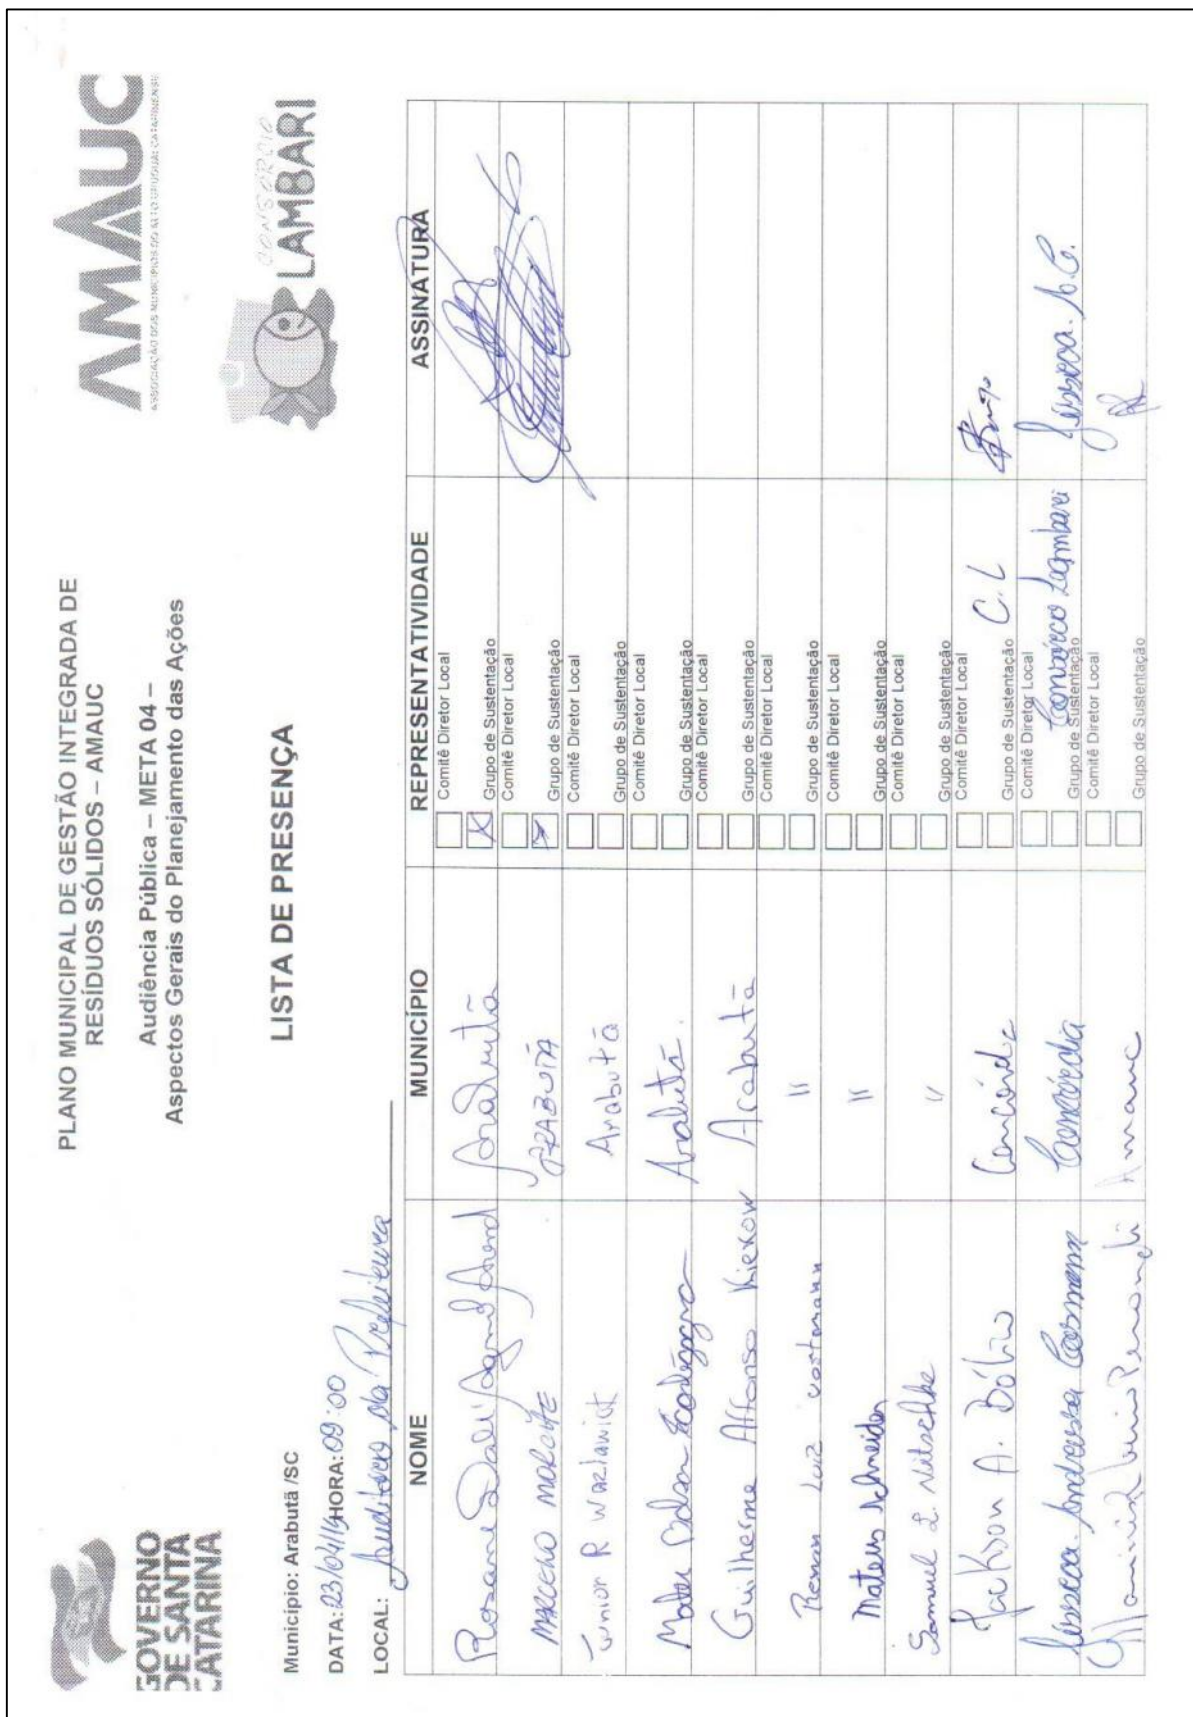 GOVERNO
DE SANTA
CATARINA
PLANO MUNICIPAL DE GESTÃO INTEGRADA DE
RESÍDUOS SÓLIDOS – AMAUC
Audiência Pública – META 04 –
Aspectos Gerais do Planejamento das Ações
AMAUC
ASSOCIAÇÃO DOS MUNICÍPIOS DO ALTO URUGUAI CATARINENSE
CONSÓRCIO
LAMBARI
LISTA DE PRESENÇA
Município: Arabutã /SC
DATA: 23/04/14 HORA: 09:00
LOCAL: Auditório da Prefeitura
NOME MUNICÍPIO REPRESENTATIVIDADE ASSINATURA
Rosane Arabutã Comitê Diretor Local
X Grupo de Sustentação
ARABUTÃ Comitê Diretor Local
X Grupo de Sustentação
Junior R Arabutã Comitê Diretor Local
Grupo de Sustentação
Arabutã. Comitê Diretor Local
Grupo de Sustentação
Guilherme Affonso Kierow Arabutã Comitê Diretor Local
Grupo de Sustentação
Renan Luiz " Comitê Diretor Local
Grupo de Sustentação
Mateus Schneider " Comitê Diretor Local
Grupo de Sustentação
Samuel L. Nitschke " Comitê Diretor Local
Grupo de Sustentação
Jackson A. Concórdia Comitê Diretor Local
Grupo de Sustentação C.L
Jéssica Andressa Concórdia Comitê Diretor Local Consórcio Lambari Jéssica. A.C.
Grupo de Sustentação
Amauc Comitê Diretor Local
Grupo de Sustentação